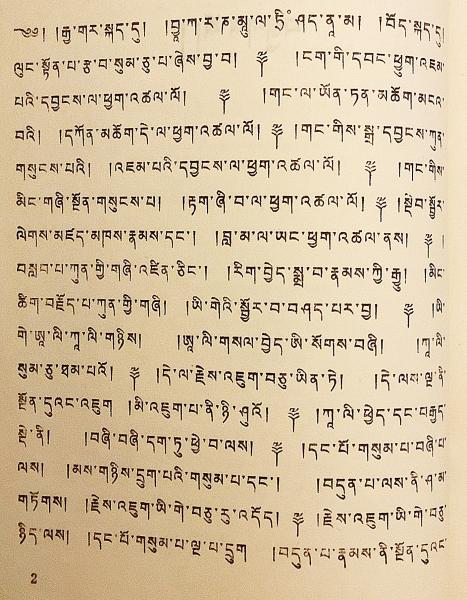 ༄༅། །རྒྱ་གར་སྐད་དུ། །བྱཱ་ཀ་ར་ཎ་མཱུ་ལ་ཏྲིཾ་ཤད་ནཱ་མ། །བོད་སྐད་དུ།
ལུང་སྟོན་པ་རྩ་བ་སུམ་ཅུ་པ་ཞེས་བྱ་བ། ༈ །ངག་གི་དབང་ཕྱུག་འཇམ་
པའི་དབྱངས་ལ་ཕྱག་འཚལ་ལོ། ༈ །གང་ལ་ཡོན་ཏན་མཆོག་མངའ་
བའི། །དཀོན་མཆོག་དེ་ལ་ཕྱག་འཚལ་ལོ། ༈ །གང་གིས་སྒྲ་དབྱངས་ཀུན་
གསུངས་པའི། །འཇམ་པའི་དབྱངས་ལ་ཕྱག་འཚལ་ལོ། ༈ །གང་གིས་
མིང་གཞི་སྔོན་གསུངས་པ། །རྟག་ཞི་བ་ལ་ཕྱག་འཚལ་ལོ། ༈ །སྡེབ་སྦྱོར་
ལེགས་མཛད་མཁས་རྣམས་དང་། །བླ་མ་ལ་ཡང་ཕྱག་འཚལ་ནས། ༈ །
བསླབ་པ་ཀུན་གྱི་གཞི་འཛིན་ཅིང་། །རིག་བྱེད་སྨྲ་བ་རྣམས་ཀྱི་རྒྱུ། །མིང་
ཚིག་བརྗོད་པ་ཀུན་གྱི་གཞི། །ཡི་གེའི་སྦྱོར་བ་བཤད་པར་བྱ། ༈ །ཡི་
གེ་ཨཱ་ལི་ཀཱ་ལི་གཉིས། །ཨཱ་ལི་གསལ་བྱེད་ཨི་སོགས་བཞི། །ཀཱ་ལི་
སུམ་ཅུ་ཐམ་པའོ། ༈ །དེ་ལ་རྗེས་འཇུག་བཅུ་ཡིན་ཏེ། །དེ་ལས་ལྔ་ནི་
སྔོན་དུའང་འཇུག །མི་འཇུག་པ་ནི་ཉི་ཤུའོ། ༈ །ཀཱ་ལི་ཕྱེད་དང་བརྒྱད་
སྡེ་ནི། །བཞི་བཞི་དག་ཏུ་ཕྱེ་བ་ལས། ༈ །དང་པོ་གསུམ་པ་བཞི་པ་
ལས། །མས་གཉིས་དྲུག་པའི་གསུམ་པ་དང་། །བདུན་པ་ལས་ནི་ཤ་མ་
གཏོགས། །རྗེས་འཇུག་ཡི་གེ་བཅུ་རུ་འདོད། ༈ །རྗེས་འཇུག་ཡི་གེ་བཅུ་
ཉིད་ལས། །དང་པོ་གསུམ་པ་ལྔ་པ་དྲུག །བདུན་པ་རྣམས་ནི་སྔོན་དུའང་
2